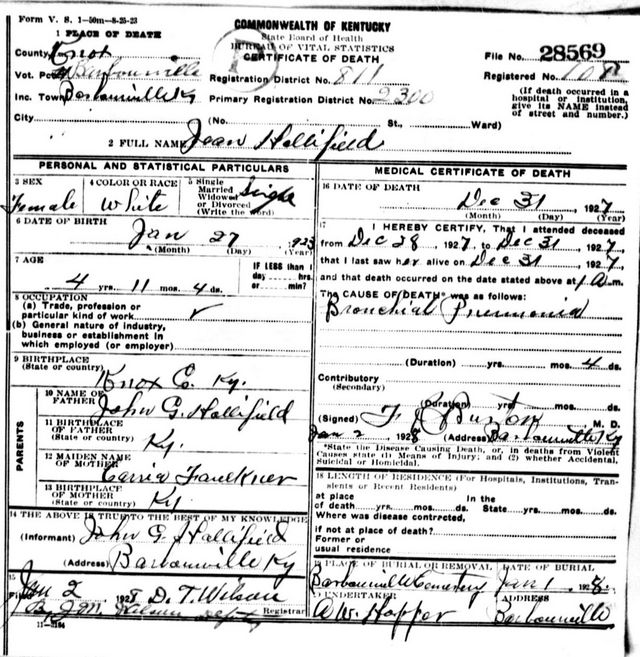 Form V. S. 1-50m-8-25-23
COMMONWEALTH OF KENTUCKY
State Board of Health
BUREAU OF VITAL STATISTICS
CERTIFICATE OF DEATH
1 PLACE OF DEATH
County Knox
Vot. Barbourville
Inc. Town Barbourville Ky
City
(No. St., Ward)
Registration District No. 811
Primary Registration District No. 2300
File No. 28569
Registered No.
(If death occurred in a
hospital or institution,
give its NAME instead
of street and number.)
2 FULL NAME Jean Hollifield
PERSONAL AND STATISTICAL PARTICULARS
3 SEX
Female
4 COLOR OR RACE
White
5 Single
Married
Widowed
or Divorced
(Write the word)
Single
6 DATE OF BIRTH
Jan 27 1923
(Month) (Day) (Year)
7 AGE
4 yrs. 11 mos. 4 ds.
IF LESS than 1
day hrs.
or min.?
8 OCCUPATION
(a) Trade, profession or
particular kind of work
(b) General nature of industry,
business or establishment in
which employed (or employer)
9 BIRTHPLACE
(State or country)
Knox Co. Ky.
PARENTS
10 NAME OF
FATHER
John G. Hollifield
11 BIRTHPLACE
OF FATHER
(State or country)
Ky.
12 MAIDEN NAME
OF MOTHER
Faulkner
13 BIRTHPLACE
OF MOTHER
(State or country)
Ky
14 THE ABOVE IS TRUE TO THE BEST OF MY KNOWLEDGE
(Informant) John G. Hollifield
(Address) Barbourville Ky
15
Filed Jan 2 1928 D. T. Wilson
Registrar
By J. M. Wilson Deputy
MEDICAL CERTIFICATE OF DEATH
16 DATE OF DEATH
Dec 31 1927
(Month) (Day) (Year)
17 I HEREBY CERTIFY, That I attended deceased
from Dec 28 1927, to Dec 31 1927,
that I last saw her alive on Dec 31 1927,
and that death occurred on the date stated above at 1 A.m.
The CAUSE OF DEATH* was as follows:
Bronchial Pneumonia
(Duration) yrs. mos. 4 ds.
Contributory
(Secondary)
(Duration) yrs. mos. ds.
(Signed) M. D.
Jan 2 1928 (Address) Barbourville Ky
*State the Disease Causing Death, or, in deaths from Violent
Causes state (1) Means of Injury; and (2) whether Accidental,
Suicidal or Homicidal.
18 LENGTH OF RESIDENCE (For Hospitals, Institutions, Transients
or Recent Residents)
at place
of death yrs. mos. ds.
In the
State yrs. mos. ds.
Where was disease contracted,
if not at place of death?
Former or
usual residence
19 PLACE OF BURIAL OR REMOVAL
Barbourville Cemetery
DATE OF BURIAL
Jan 1 1928
20 UNDERTAKER
A. W. Hopper
ADDRESS
Barbourville